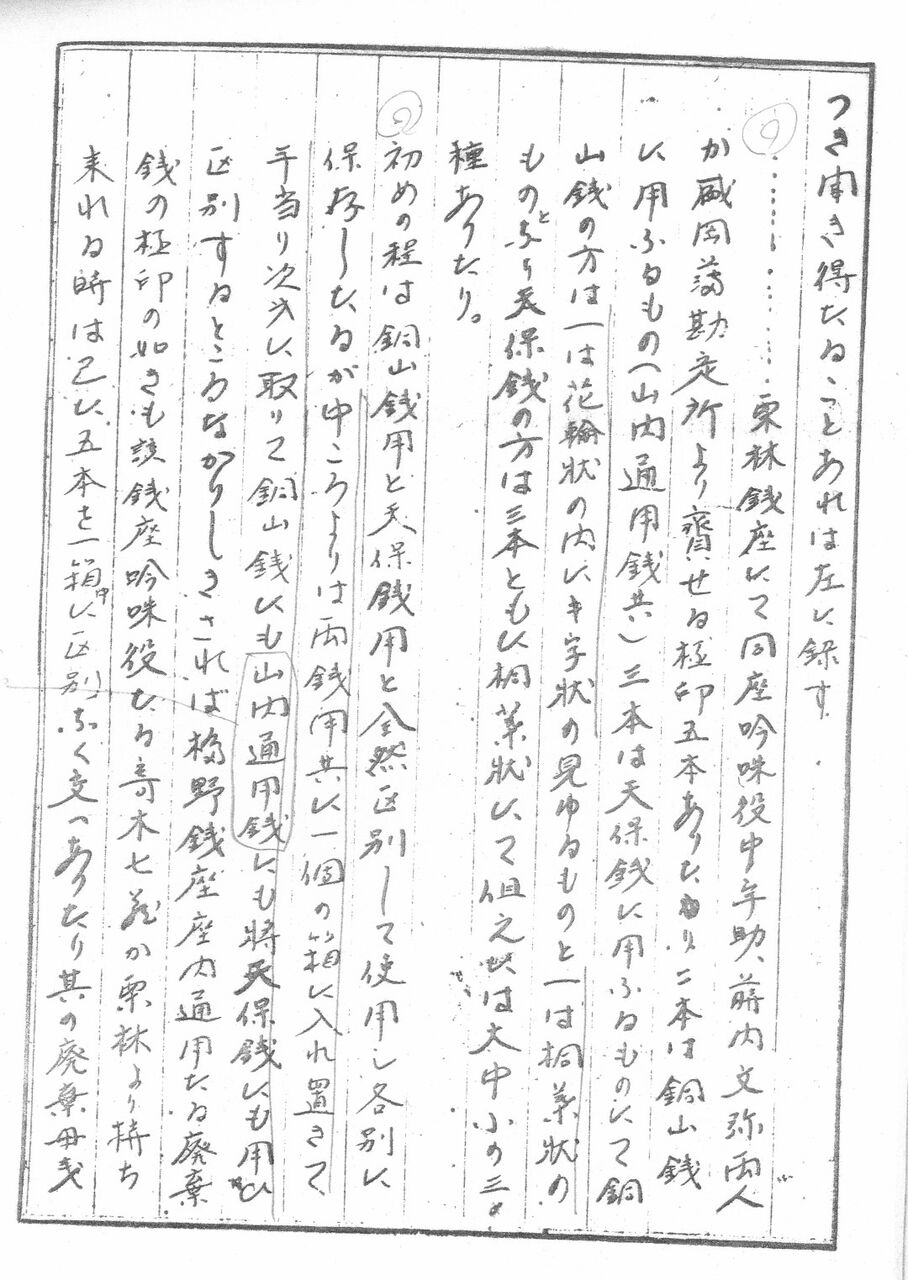 つき聞き得たることあれは左に録す.
…………栗林銭座にて同座吟味役中年助、蒋内文弥両人
か盛岡藩勘定所より賷せる極印五本ありたり二本は銅山銭
に用ふるもの(山内通用銭共)三本は天保銭に用ふるものにて銅
山銭の方は一は花輪状の内にキ字状の見ゆるものと一は桐葉状の
ものとなり天保銭の方は三本ともに桐葉状にて但えは大中小の三
種ありたり。
初めの程は銅山銭用と天保銭用と全然区別して使用し各別に
保存したるが中ころよりは両銭用共に一個の箱に入れ置きて
手当り次第に取りて銅山銭にも山内通用銭にも将天保銭にも用ひ
区別するところなかりしきされば橋野銭座座内通用たる廃棄
銭の極印の如きも該銭座吟味役たる寄木七蔵か栗林より持ち
来れる時は已に五本を一箱中に区別なく交へありたり其の廃棄母銭